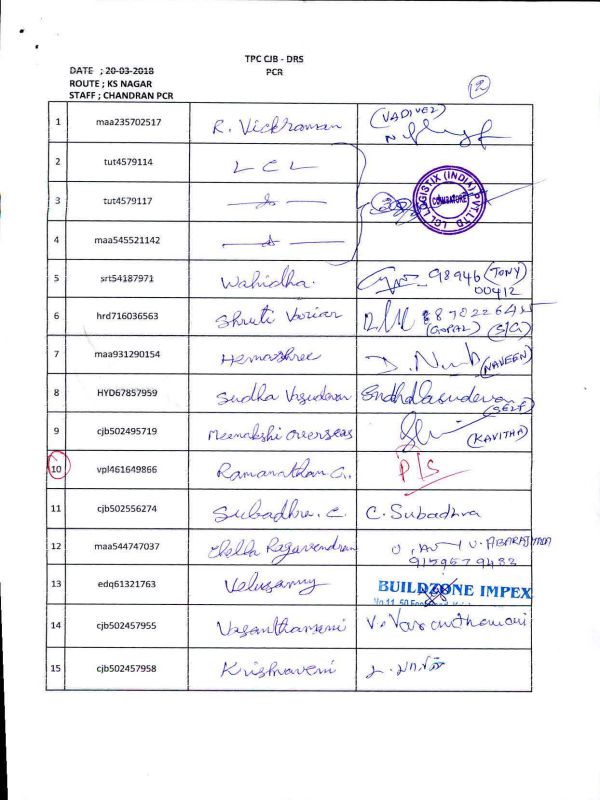 TPC CJB - DRS
PCR
DATE ; 20-03-2018
ROUTE ; KS NAGAR
STAFF ; CHANDRAN PCR
2
1 maa235702517 R. Vickraman (VADIVEL)
2 tut4579114 L C L
3 tut4579117
LCL LOGISTIX (INDIA) PVT LTD COIMBATORE
4 maa545521142
5 srt54187971 Wahidha. 98946 (TONY)
00412
6 hrd716036563 Shruti Varier
(GOPAL) (S/G)
7 maa931290154 Hemashree (NAVEEN)
8 HYD67857959 Sudha Vasudevan Sudha Vasudevan
(SELF)
9 cjb502495719 Meenakshi overseas (KAVITHA)
10 vpl461649866 Ramanathan G. P/S
11 cjb502556274 Subadhra. C. C. Subadhra
12 maa544747037 Ragavendran
9159579433
13 edq61321763 Velusamy BUILDZONE IMPEX
14 cjb502457955 Vasanthamani V. Vasanthamani
15 cjb502457958 Krishnaveni